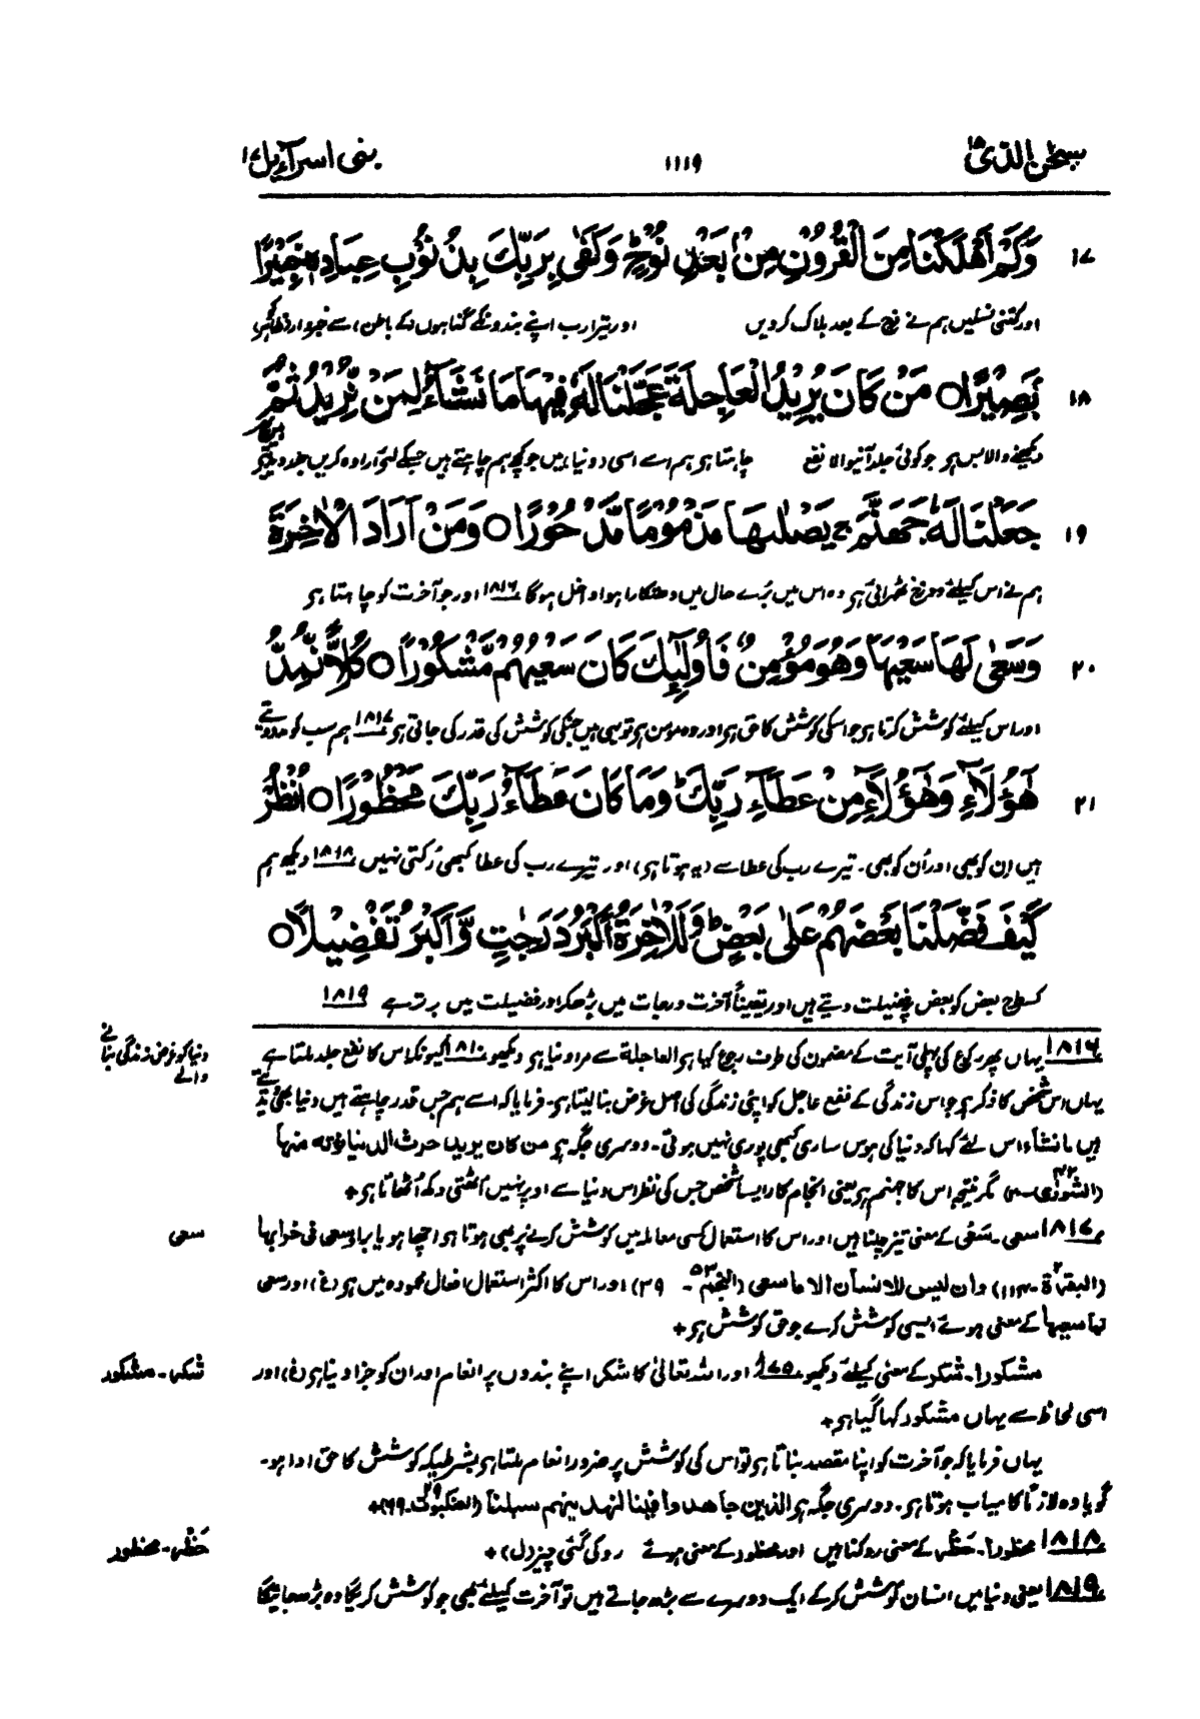 سبحٰن الذیٓ ۱۵
۱۱۱۹
بنیٓ اسرآءیل ۱۷
۱۷ وَكَمْ اَهْلَكْنَا مِنَ الْقُرُوْنِ مِنْۢ بَعْدِ نُوْحٍ ؕ وَكَفٰى بِرَبِّكَ بِذُنُوْبِ عِبَادِهٖ خَبِيْرًۢا
اور کتنی نسلیں ہم نے نوح کے بعد ہلاک کردیں اور تیرا رب اپنے بندونکے گناہوں کے باطن سے خبردار ظاہر کو
۱۸ بَصِيْرًا ○ مَنْ كَانَ يُرِيْدُ الْعَاجِلَةَ عَجَّلْنَا لَهٗ فِيْهَا مَا نَشَآءُ لِمَنْ نُّرِيْدُ ثُمَّ
دیکھنے والا بس ہر جو کوئی جلد آنیوالا نفع چاہتا ہر ہم اسے اسی (دنیا) میں جو کچھ ہم چاہتے ہیں جسکے لئے ارادہ کریں جلد دیتے ہیں پھر
۱۹ جَعَلْنَا لَهٗ جَهَنَّمَ ۚ يَصْلٰىهَا مَذْمُوْمًا مَّدْحُوْرًا ○ وَمَنْ اَرَادَ الْاٰخِرَةَ
ہم نے اس کیلئے دوزخ ٹھرائی ہر وہ اس میں بُرے حال میں دھتکارا ہوا داخل ہوگا ۱۸۱۶ اور جو آخرت کو چاہتا ہر
۲۰ وَسَعٰى لَهَا سَعْيَهَا وَهُوَ مُؤْمِنٌ فَاُولٰٓئِكَ كَانَ سَعْيُهُمْ مَّشْكُوْرًا ○ كُلًّا نُّمِدُّ
اور اس کیلئے کوشش کرتا ہر جو اسکی کوشش کا حق ہر اور وہ مومن ہر تو یہی ہیں جنکی کوشش کی قدر کی جاتی ہر ۱۸۱۷ ہم سب کو مدد دیتے
۲۱ هٰٓؤُلَآءِ وَهٰٓؤُلَآءِ مِنْ عَطَآءِ رَبِّكَ ؕ وَمَا كَانَ عَطَآءُ رَبِّكَ مَحْظُوْرًا ○ اُنْظُرْ
ہیں اِن کو بھی اور اُن کو بھی۔ تیرے رب کی عطا سے (یہ ہوتا ہر) اور تیرے رب کی عطا کبھی رُکتی نہیں ۱۸۱۸ دیکھ ہم
كَيْفَ فَضَّلْنَا بَعْضَهُمْ عَلٰى بَعْضٍ ؕ وَلَلْاٰخِرَةُ اَكْبَرُ دَرَجٰتٍ وَّاَكْبَرُ تَفْضِيْلًا ○
کسطرح بعض کو بعض پر فضیلت دیتے ہیں اور یقیناً آخرت درجات میں بڑھکر اور فضیلت میں برتر ہے ۱۸۱۹
دنیا کو غرض زندگی بنانے والے
۱۸۱۶ یہاں پھر رکوع کی پہلی آیت کے مضمون کی طرف رجوع کیا ہر العاجلة سے مراد دنیا ہر دیکھو ۱۸۱۰ کیونکہ اس کا نفع جلد ملتا ہے
یہاں اس شخص کا ذکر ہر جو اس زندگی کے نفع عاجل کو اپنی زندگی کی اصل غرض بنا لیتا ہر۔ فرمایا کہ اسے ہم جس قدر چاہتے ہیں دنیا بھی دیدیتے
ہیں مانشاء اس لئے کہا کہ دنیا کی ہوس ساری کبھی پوری نہیں ہوتی۔ دوسری جگہ ہر من کان یرید حرث الدنیا نؤته منها
(الشورٰی ۴۲ ـ ۲۰) مگر نتیجہ اس کا جہنم ہر یعنی انجام کار ایسا شخص جس کی نظر اس دنیا سے اوپر نہیں اُٹھتی دکھ اُٹھاتا ہر +
سعی
۱۸۱۷ سعی۔ سَعْی کے معنی تیز چلنا ہیں اور اس کا استعمال کسی معاملہ میں کوشش کرنے پر بھی ہوتا ہر اچھا ہو یا برا وسعی فی خرابها
(البقرة ۲ ـ ۱۱۴) وان لیس للانسان الا ما سعی (النجم ۵۳ ـ ۳۹) اور اس کا اکثر استعمال افعال محمودہ میں ہر (غ) اور سعی
لها سعیها کے معنی ہوئے ایسی کوشش کرے جو حق کوشش ہر +
شکر۔ مشکور
مشکورا۔ شکر کے معنی کیلئے دیکھو ۱۷۵ اور اللہ تعالیٰ کا شکر اپنے بندوں پر انعام اور ان کو جزا دینا ہر (غ) اور
اسی لحاظ سے یہاں مشکور کہا گیا ہر +
یہاں فرمایا کہ جو آخرت کو اپنا مقصد بناتا ہر تو اس کی کوشش پر ضرور انعام ملتا ہر بشرطیکہ کوشش کا حق ادا ہو۔
گویا وہ لازماً کامیاب ہوتا ہر۔ دوسری جگہ ہر والذین جاهدوا فینا لنهدینهم سبلنا (العنکبوت ۲۹ ـ ۶۹) +
حَظْر۔ محظور
۱۸۱۸ محظورا۔ حَظْر کے معنی روکنا ہیں اور محظور کے معنی ہوئے روکی گئی چیز (ل) +
۱۸۱۹ یعنی دنیا میں انسان کوشش کرکے ایک دوسرے سے بڑھ جاتے ہیں تو آخرت کیلئے بھی جو کوشش کریگا وہ بڑھ جائیگا